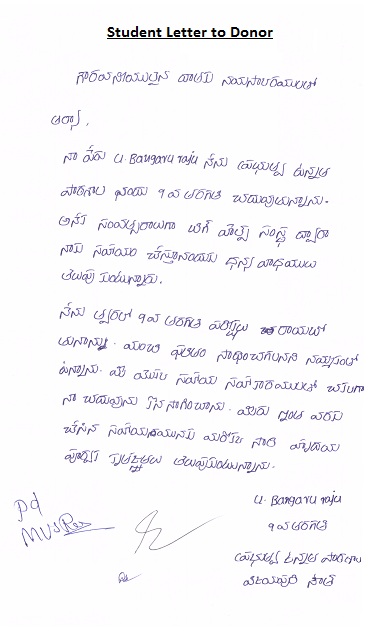 Student Letter to Donor
గౌరవనీయులైన దాతకు నమస్కారములతో
ఆర్యా,
నా పేరు U. Bangaru raju నేను ప్రభుత్వ ఉన్నత
పాఠశాల నందు 9వ తరగతి చదువుతున్నాను.
సంస్థ ద్వారా
నాకు సహాయం చేస్తున్నందుకు ధన్యవాదములు
తెలుపుకుంటున్నాను.
నేను త్వరలో 9వ తరగతి పరీక్షలు రాయబో
తున్నాను. మంచి ఫలితం సాధించగలనని నమ్మకంతో
ఉన్నాను. మీ సహాయ సహకారములతో
నా చదువును కొనసాగించాను. మీరు ఇంత వరకు
చేసిన సహాయమునకు మరొక సారి హృదయ
పూర్వక కృతజ్ఞతలు తెలుపుకుంటున్నాను.
U. Bangaru raju
9వ తరగతి
ప్రభుత్వ ఉన్నత పాఠశాల
విజయపురి సౌత్